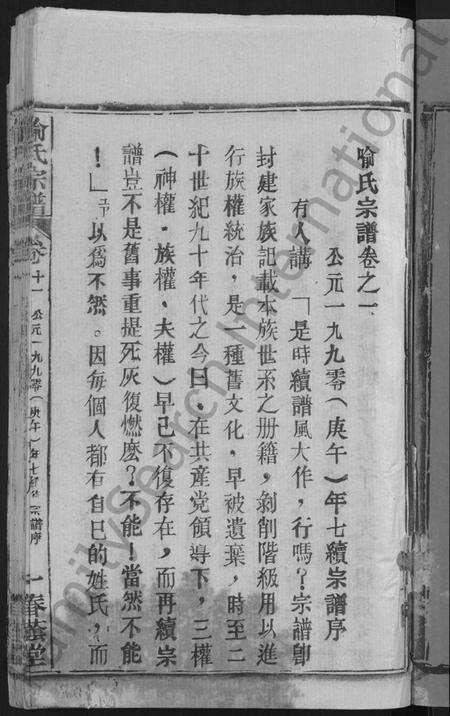 喻氏宗譜卷之一
公元一九九零（庚午）年七續宗譜序
有人講「是時續譜風大作，行嗎？宗譜即
封建家族記載本族世系之册籍，剝削階級用以進
行族權統治，是一種舊文化，早被遺棄，時至二
十世紀九十年代之今日，在共產党領導下，三權
（神權·族權、夫權）早已不復存在，而再續宗
譜豈不是舊事重提死灰復燃麽？不能！當然不能
！」予以爲不然。因每個人都有自己的姓氏，而
喻氏宗譜
卷十一
公元一九九零（庚午）年七續宗譜序
一
春蔭堂
FamilySearch International